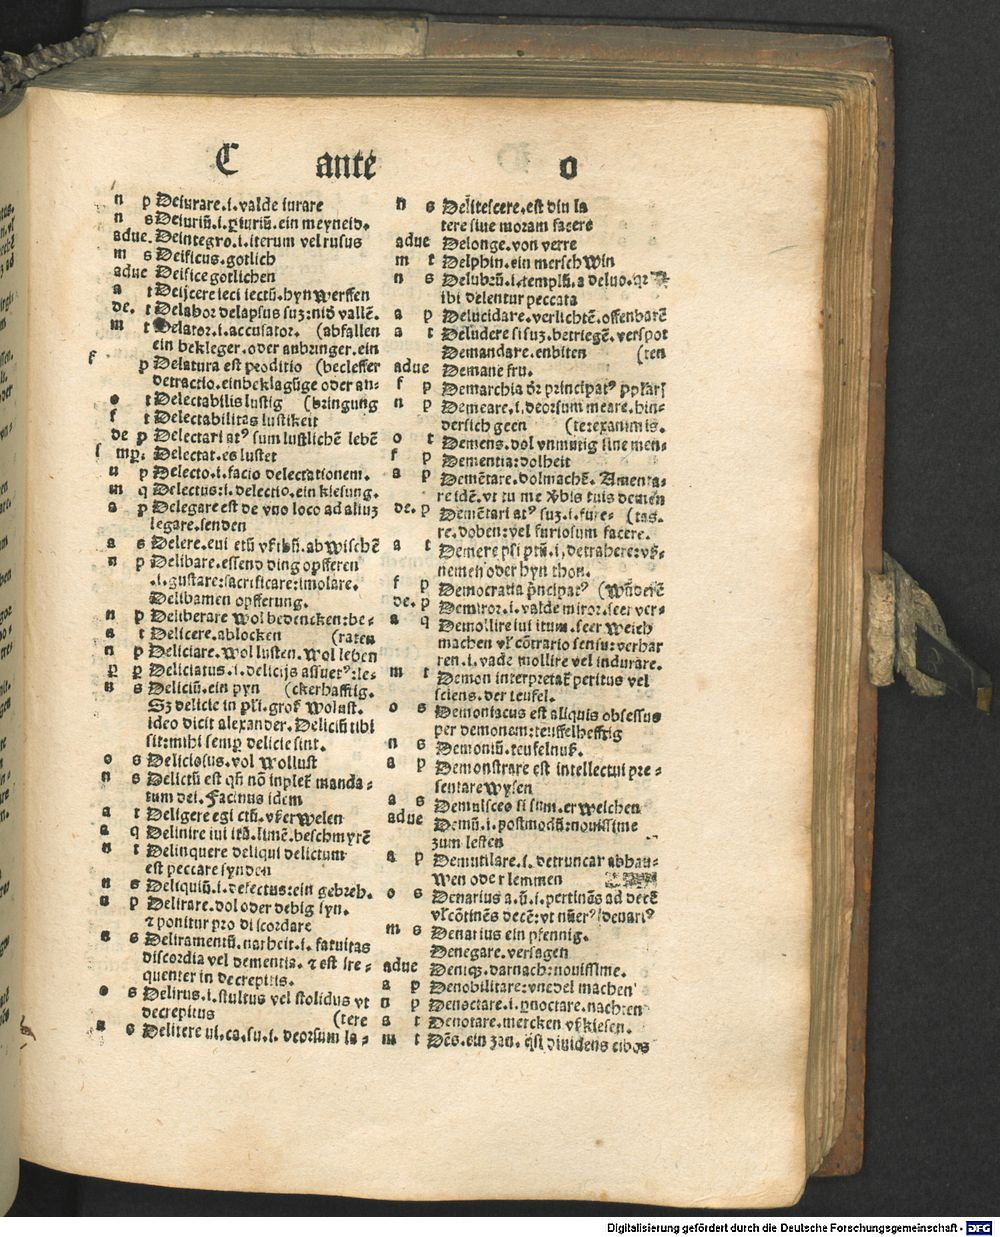 C ante o
n p Deiurare.i.valde iurare
n s Deiuriū.i.ꝑiuriū.ein meyneid.
adue. Deintegro.i.iterum vel rusus
m s Deificus.gotlich
adue Deifice gotlichen
a t Deijcere ieci iectū.hyn werffen
de. t Delabor delapsus suʒ:nid vallē.
m t Delator.i.accusator. (abfallen
ein bekleger.oder anbringer.ein
f p Delatura est ꝓditio (becleffer
detractio.einbeklagūge oder an-
o t Delectabilis lustig (bringung
f t Delectabilitas lustikeit
de p Delectari atꝰ sum lustlichē lebē
f mp. Delectat.es lustet
n p Delecto.i.facio delectationem.
m q Delectus:i.delectio.ein kiesung.
a p Delegare est de vno loco ad aliuʒ
legare.senden
a s Delere.eui etū abwischē
n p Delibare.essend ding opfferen
.i.gustare:sacrificare:imolare.
Delibamen opfferung.
n p Deliberare wol bedencken:be-
a t Delicere.ablocken (raten
n p Deliciare.wol lusten.wol leben
p p Deliciatus.i.delicijs assuetꝰ:le-
n s Deliciū.ein pyn (ckerhafftig.
Sʒ delicie in wolust.
ideo dicit alexander.Deliciū tibi
sit:mihi semꝑ delicie sint.
o s Deliciosus.vol wollust
n s Delictū est qn̄ nō inplet manda-
tum dei.Facinus idem
a t Deligere egi ctū.erwelen
a q Delinire iui itū.limē.beschmyrē
n t Delinquere deliqui delictum
est peccare synden
n s Deliquiū.i.defectus:ein gebreh.
n p Delirare.dol oder debig syn.
⁊ ponitur pro discordare
n s Deliramentū.narheit.i.fatuitas
discordia vel dementia.⁊ est fre-
quenter in decrepitis.
o s Delirus.i.stultus vel stolidus vt
decrepitus (tere
n s Delitere ui.ca.su.i.deorsum la-
n s Delitescere.est diu la
tere siue moram facere
adue Delonge.von verre
m t Delphin.ein merschwin
n s Delubrū.i.templū.a deluo.qr
ibi delentur peccata
a p Delucidare.verlichtē.offenbarē
a t Deludere si suʒ.betriegē.verspot
Demandare.enbiten (ten
adue Demane fru.
f p Demarchia principatꝰ
n p Demeare.i.deorsum meare.hin-
dersich geen (te:exanimis.
o t Demens.dol vnmutig sine men-
f p Dementia:dolheit
a p Demētare.dolmachē. Amenta-
re idē.vt tu me ꝟbis tuis demen
de. p Demētari atꝰ suʒ.i.fure- (tas.
re.doben:vel furiosum facere.
a t Demere psi ptū.i.detrahere:
nemen oder hyn thon.
f p Democratia pͥncipatꝰ (wūderē
de. p Demiror.i.valde miror.seer ver-
a q Demollire iui itum.seer weich
machen cōtrario sensu:verhar
ren.i.vade mollire vel indurare.
m t Demon interpretat peritus vel
sciens.der teufel.
o s Demoniacus est aliquis obsessus
per demonem:teuffelhefftig
n s Demoniū.teufelnuß.
a p Demonstrare est intellectui pre-
sentare wysen
a s Demulsceo si sum.erweichen
adue Demū.i.postmodū:nouissime
zum lesten
a p Demutilare.i.detruncar abhau-
wen oder lemmen
o s Denarius a.ū.i.pertinēs ad decē
cōtinēs decē:vt nūerꝰ denariꝰ
m s Denarius ein pfennig.
Denegare.versagen
adue Deniqꝫ.darnach:nouissime.
a p Denobilitare:vnedel machen
n p Denoctare.i.ꝑnoctare.nachten
a t Denotare.mercken kiesen.
m t Dēs.ein zan. diuidens cibos
Digitalisierung gefördert durch die Deutsche Forschungsgemeinschaft - DFG